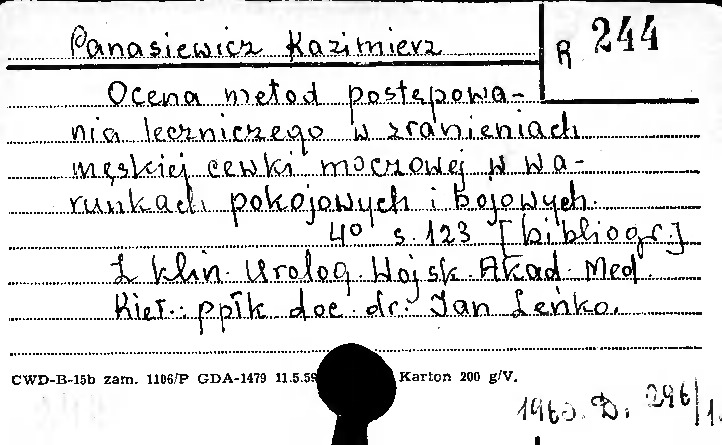 Panasiewicz Kazimierz
R 244
Ocena metod postępowa-
nia leczniczego w zranieniach
męskiej cewki moczowej w wa-
runkach pokojowych i bojowych.
4° s. 123 [bibliogr.]
Z Klin. Urolog. Wojsk. Akad. Med.
Kier.: ppłk doc. dr. Jan Leńko.
CWD-B-15b zam. 1106/P GDA-1479 11.5.59 Karton 200 g/V.
1960. D. 296/1.